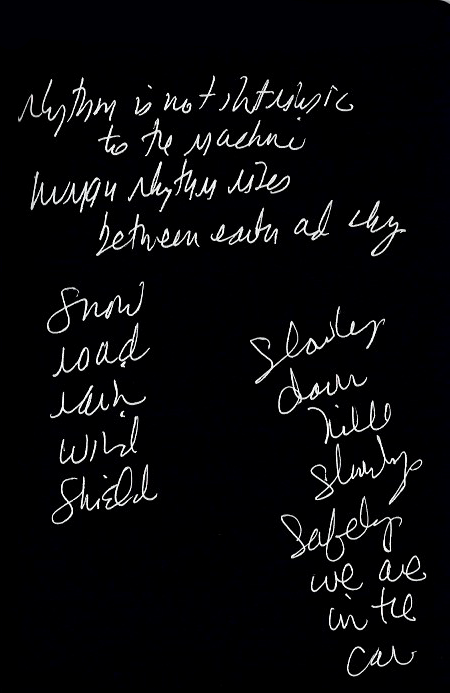 rhythm is not intrinsic
to the machine
human rhythm rises
between earth and sky
Snow
road
rain
wind
Shield
Slowly
down
hill
Slowly
Safely
we are
in the
car